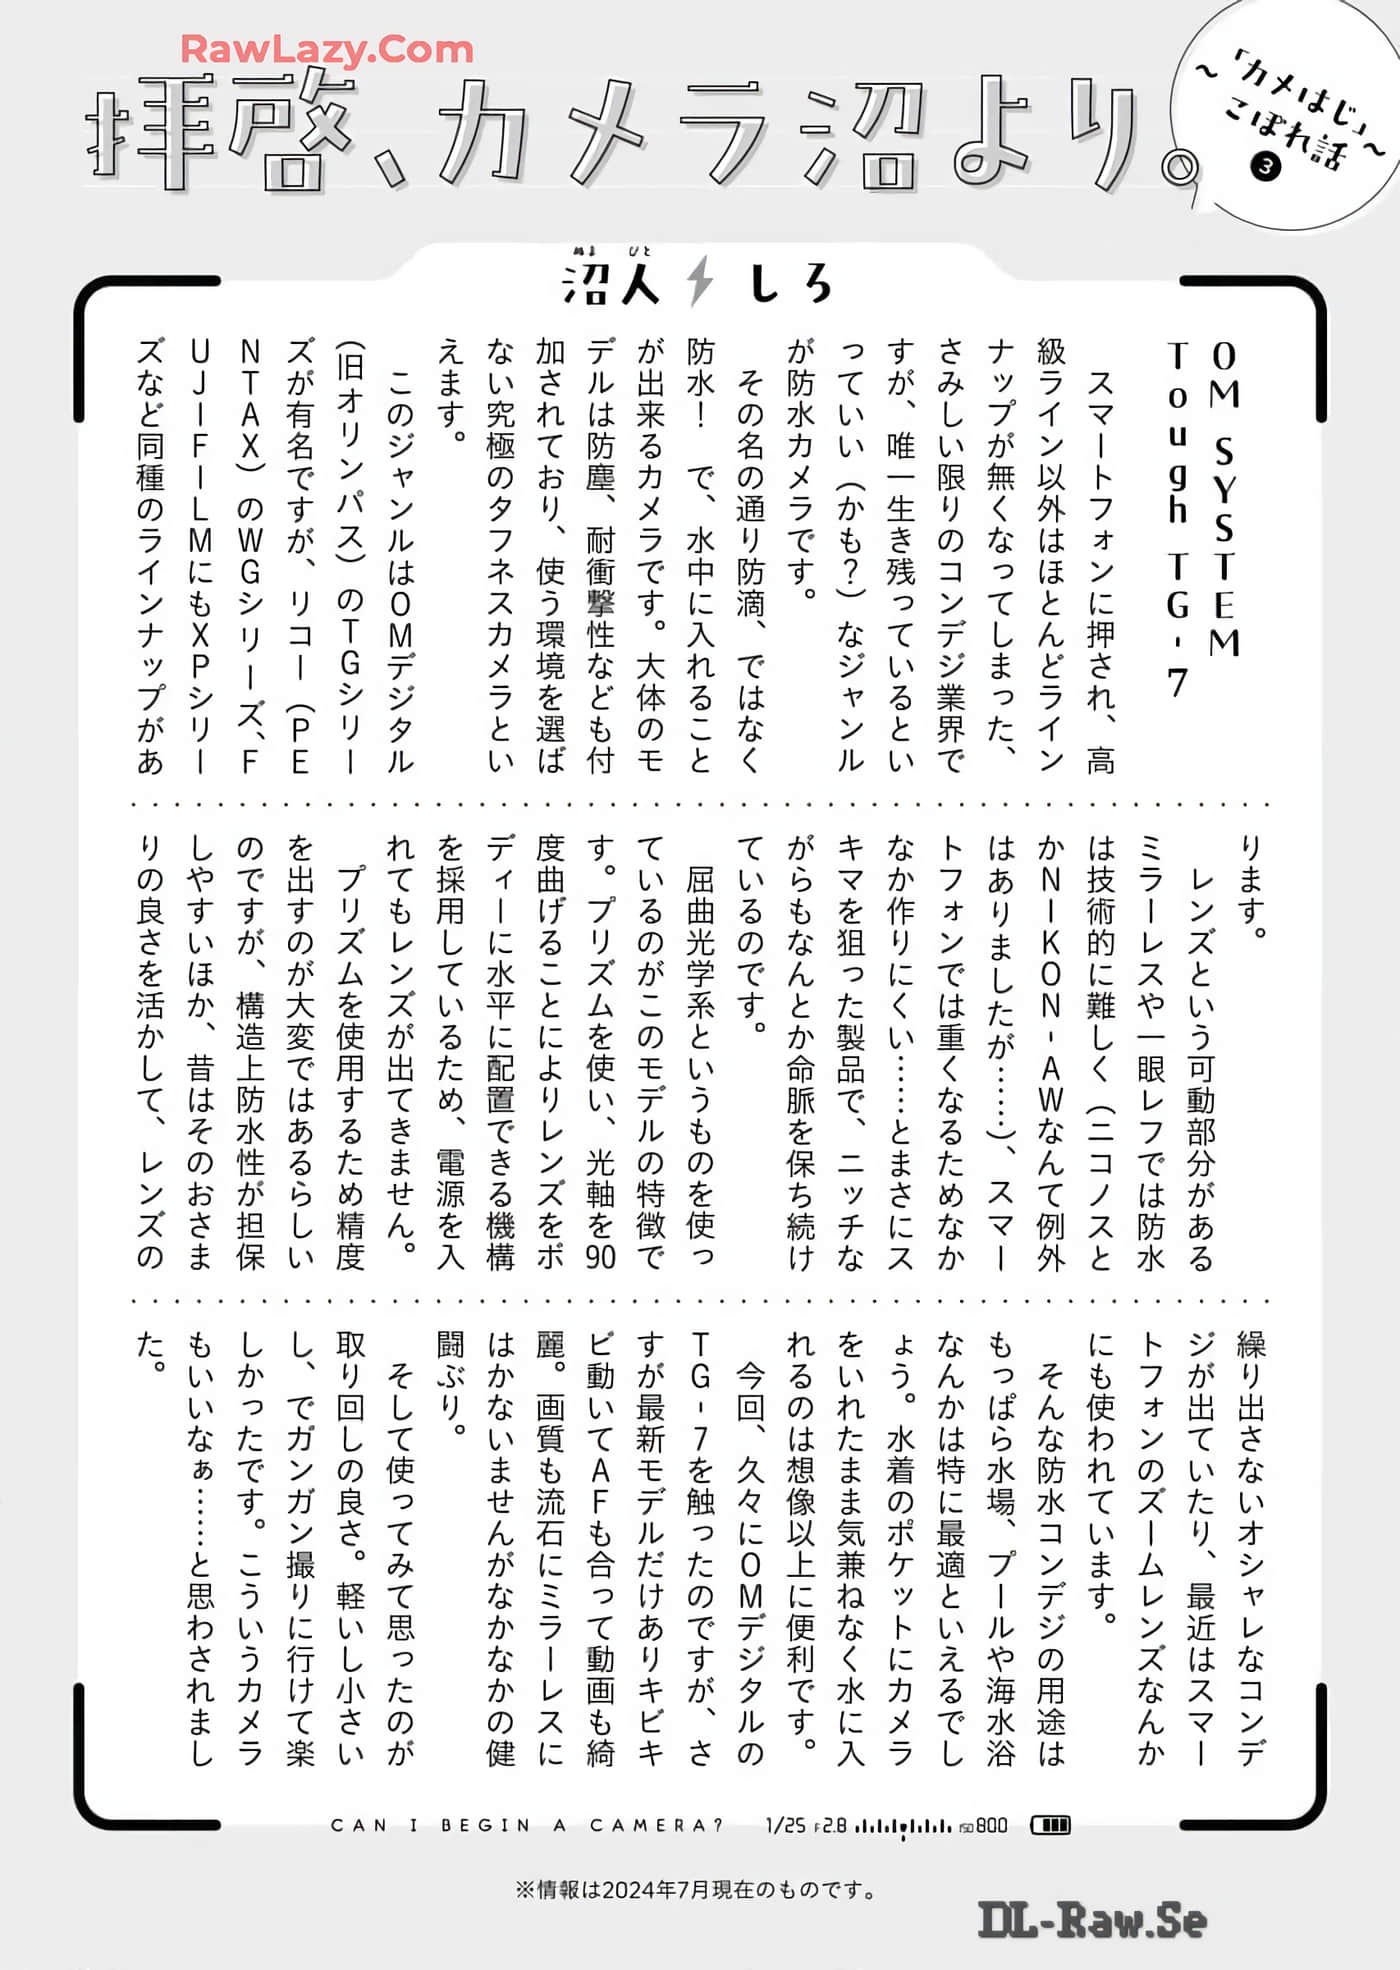 RawLazy.Com
拝啓、カメラ沼より。
～「カメはじ」～
こぼれ話
❸
ぬま びと
沼人⚡しろ
OM SYSTEM
Tough TG-7
　スマートフォンに押され、高
級ライン以外はほとんどライン
ナップが無くなってしまった、
さみしい限りのコンデジ業界で
すが、唯一生き残っているとい
っていい（かも？）なジャンル
が防水カメラです。
　その名の通り防滴、ではなく
防水！　で、水中に入れること
が出来るカメラです。大体のモ
デルは防塵、耐衝撃性なども付
加されており、使う環境を選ば
ない究極のタフネスカメラとい
えます。
　このジャンルはOMデジタル
（旧オリンパス）のTGシリー
ズが有名ですが、リコー（PE
NTAX）のWGシリーズ、F
UJIFILMにもXPシリー
ズなど同種のラインナップがあ
ります。
　レンズという可動部分がある
ミラーレスや一眼レフでは防水
は技術的に難しく（ニコノスと
かNIKON-AWなんて例外
はありましたが……）、スマー
トフォンでは重くなるためなか
なか作りにくい……とまさにス
キマを狙った製品で、ニッチな
がらもなんとか命脈を保ち続け
ているのです。
　屈曲光学系というものを使っ
ているのがこのモデルの特徴で
す。プリズムを使い、光軸を90
度曲げることによりレンズをボ
ディーに水平に配置できる機構
を採用しているため、電源を入
れてもレンズが出てきません。
　プリズムを使用するため精度
を出すのが大変ではあるらしい
のですが、構造上防水性が担保
しやすいほか、昔はそのおさま
りの良さを活かして、レンズの
繰り出さないオシャレなコンデ
ジが出ていたり、最近はスマー
トフォンのズームレンズなんか
にも使われています。
　そんな防水コンデジの用途は
もっぱら水場、プールや海水浴
なんかは特に最適といえるでし
ょう。水着のポケットにカメラ
をいれたまま気兼ねなく水に入
れるのは想像以上に便利です。
　今回、久々にOMデジタルの
TG-7を触ったのですが、さ
すが最新モデルだけありキビキ
ビ動いてAFも合って動画も綺
麗。画質も流石にミラーレスに
はかないませんがなかなかの健
闘ぶり。
　そして使ってみて思ったのが
取り回しの良さ。軽いし小さい
し、でガンガン撮りに行けて楽
しかったです。こういうカメラ
もいいなぁ……と思わされまし
た。
CAN I BEGIN A CAMERA? 1/25 F2.8 ISO800
※情報は2024年7月現在のものです。
DL-Raw.Se